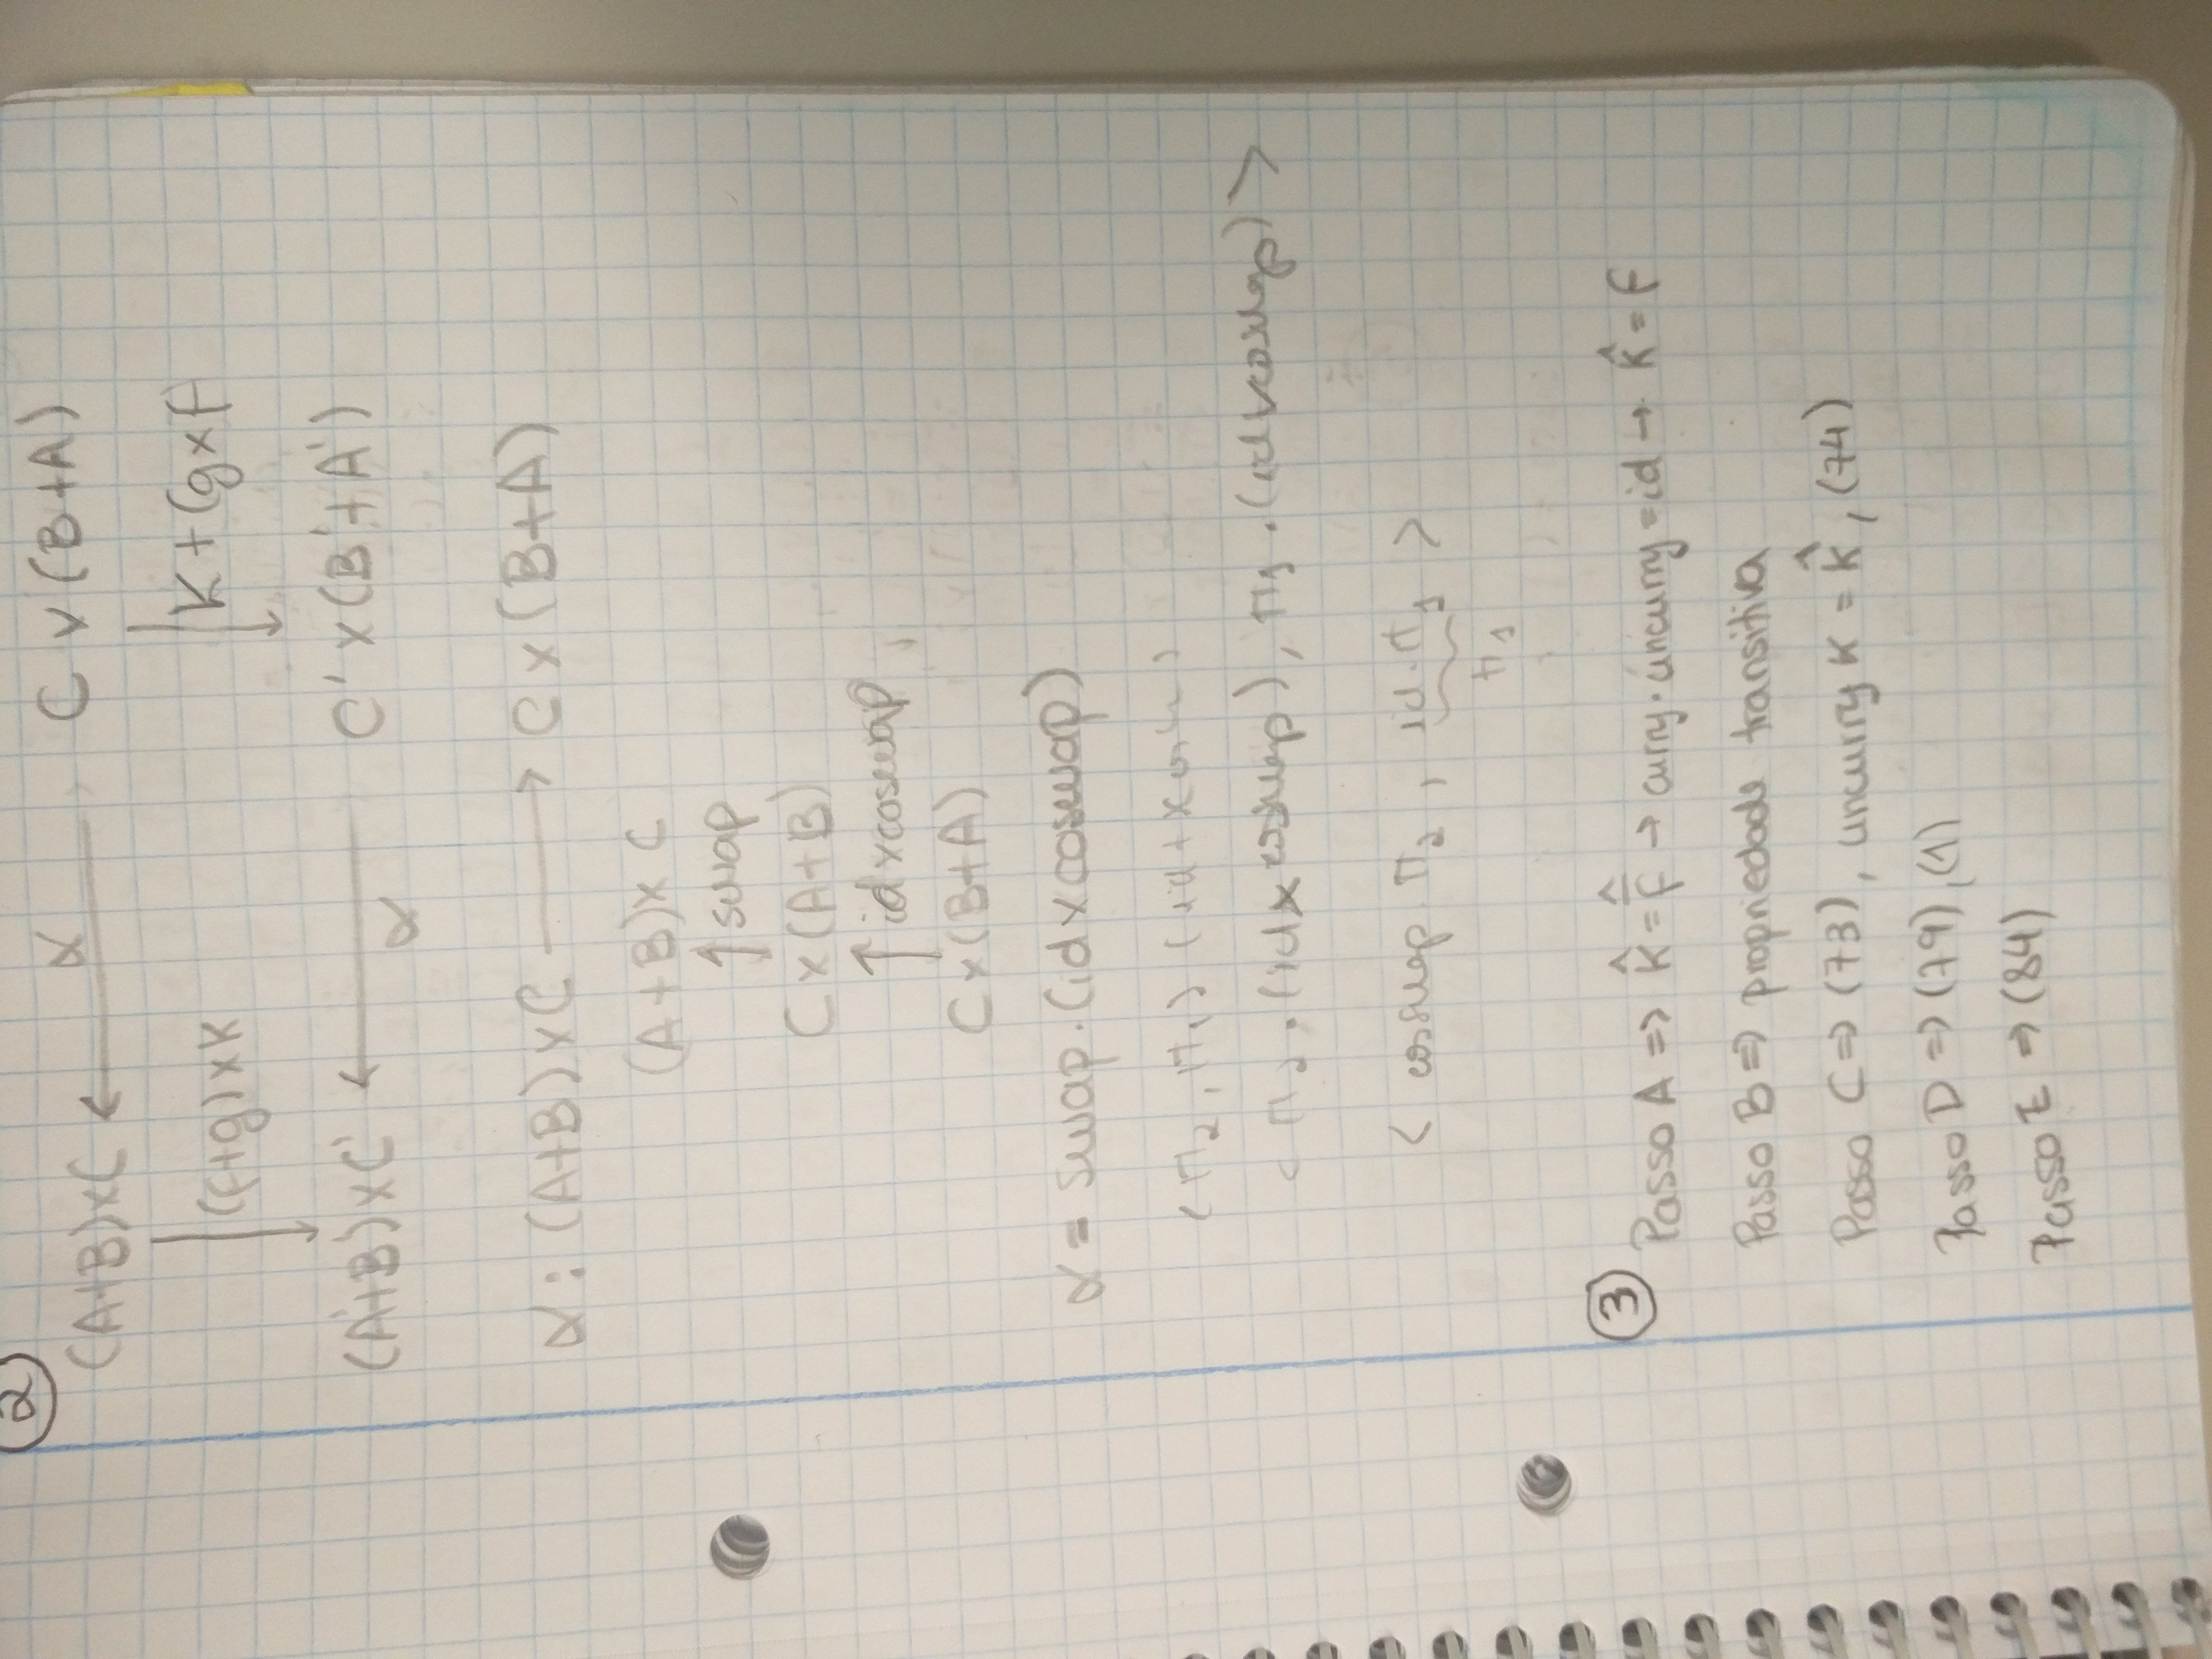 2
(A+B)×C ← α C × (B+A)
↓ (f+g)×K ↓ K+(g×f
(A'+B')×C' ← α C' × (B'+A')
α : (A+B)×C → C × (B+A)
(A+B)× C
↑ swap
C×(A+B)
↑ id×coswap
C×(B+A)
α = swap.(id×coswap)
⟨π₂, π₁⟩ (id+×
⟨π₂ . (id×coswap), π₁ . (id×coswap)⟩
⟨ coswap . π₂ , id.π₁ ⟩
π₁
3
Passo A => K̂ = f̂̅ → curry.uncurry = id → K̂ = f
Passo B => propriedade transitiva
Passo C => (73), uncurry K = K̂, (74)
Passo D => (79), (1)
Passo E => (84)